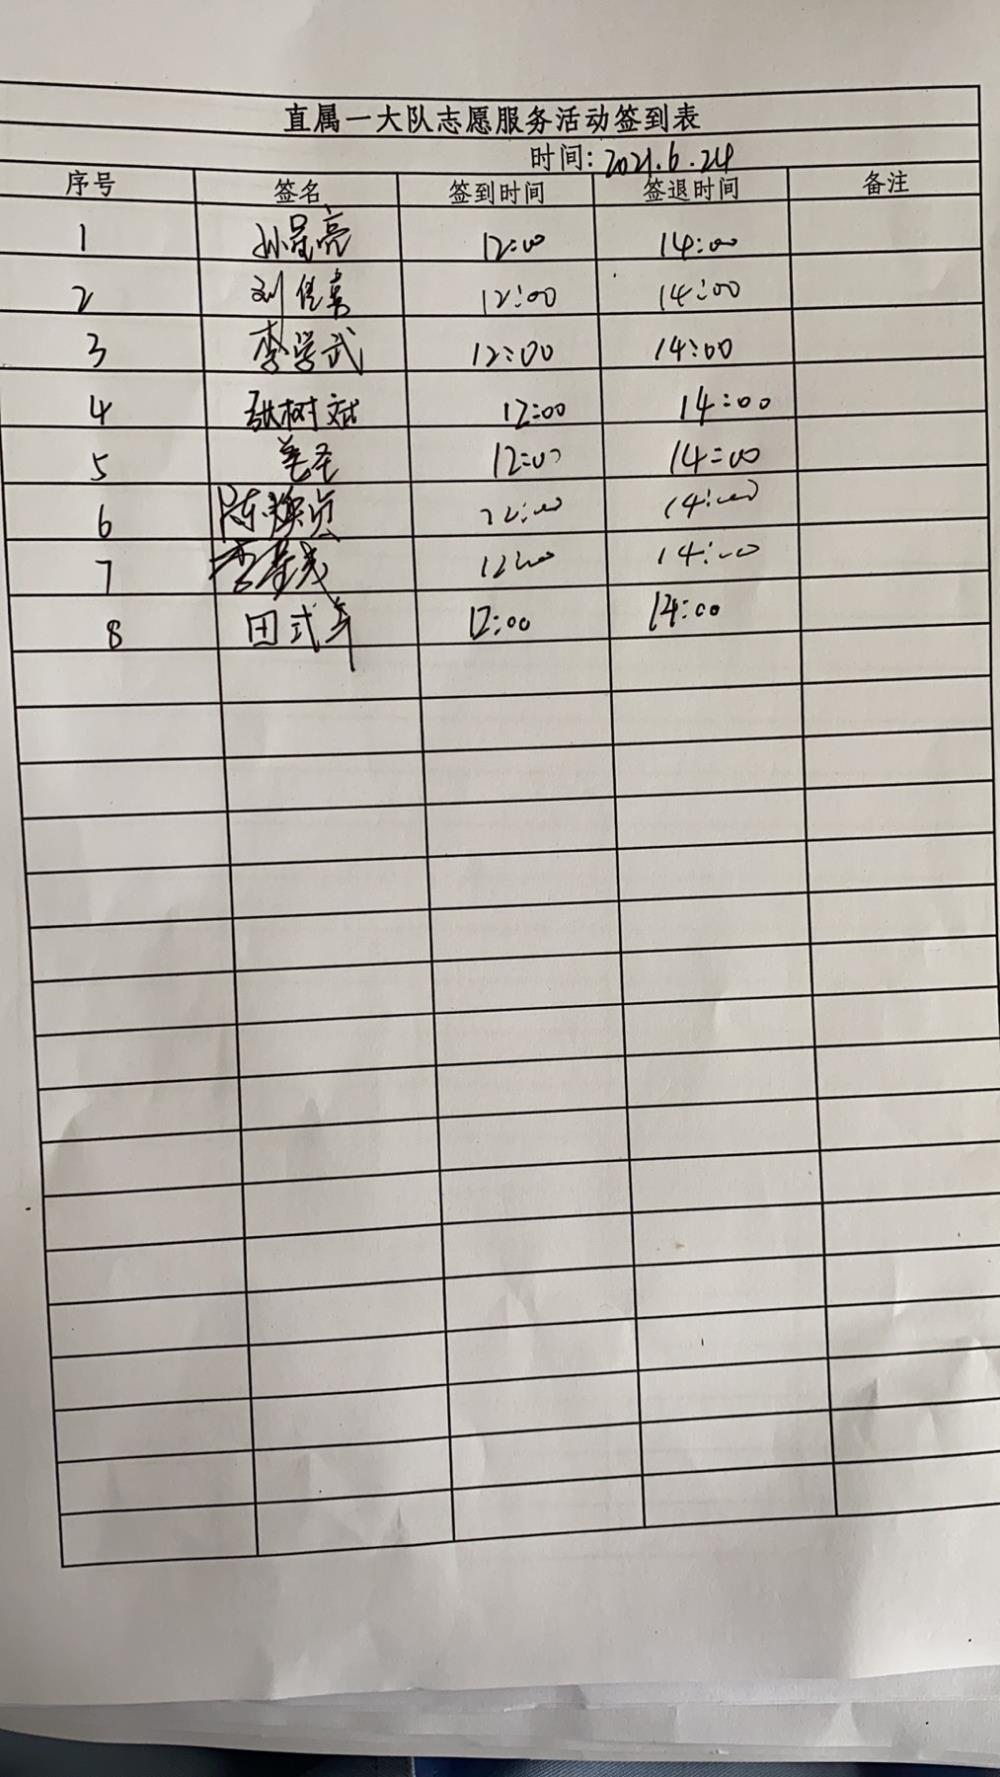 直属一大队志愿服务活动签到表
时间: 2021.6.24
序号 签名 签到时间 签退时间 备注
1 孙星亮 12:00 14:00
2 刘 12:00 14:00
3 李学武 12:00 14:00
4 张树斌 12:00 14:00
5 姜圣 12:00 14:00
6 陈焕贞 12:00 14:00
7 李 12:00 14:00
8 田式年 12:00 14:00